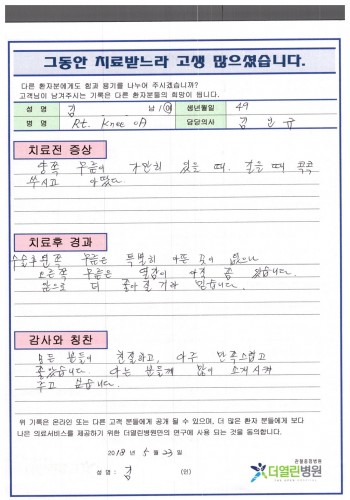 그동안 치료받느라 고생 많으셨습니다.
다른 환자분에게도 힘과 용기를 나누어 주시겠습니까?
고객님이 남겨주시는 기록은 다른 환자분들의 희망이 됩니다.
성 명 김 남 / 여 생년월일 49
병 명 Rt. Knee OA 담당의사 김
치료전 증상
양쪽 무릎이 가만히 있을 때, 걸을 때 콕콕
쑤시고 아팠다
치료후 경과
수술후 왼쪽 무릎은 특별히 아픈 곳이 없으나
오른쪽 무릎은 열감이 아직 좀 있습니다.
앞으로 더 좋아질 거라 믿습니다.
감사와 칭찬
모든 분들이 친절하고, 아주 만족스럽고
좋았습니다. 아는 분들께 많이 소개시켜
주고 싶습니다.
위 기록은 온라인 또는 다른 고객 분들에게 공개 될 수 있으며, 더 많은 환자 분들에게 보다
나은 의료서비스를 제공하기 위한 더열린병원만의 연구에 사용 되는 것을 동의합니다.
2018 년 5 월 23 일
성 명 : 김 (인)
관절중점병원
더열린병원